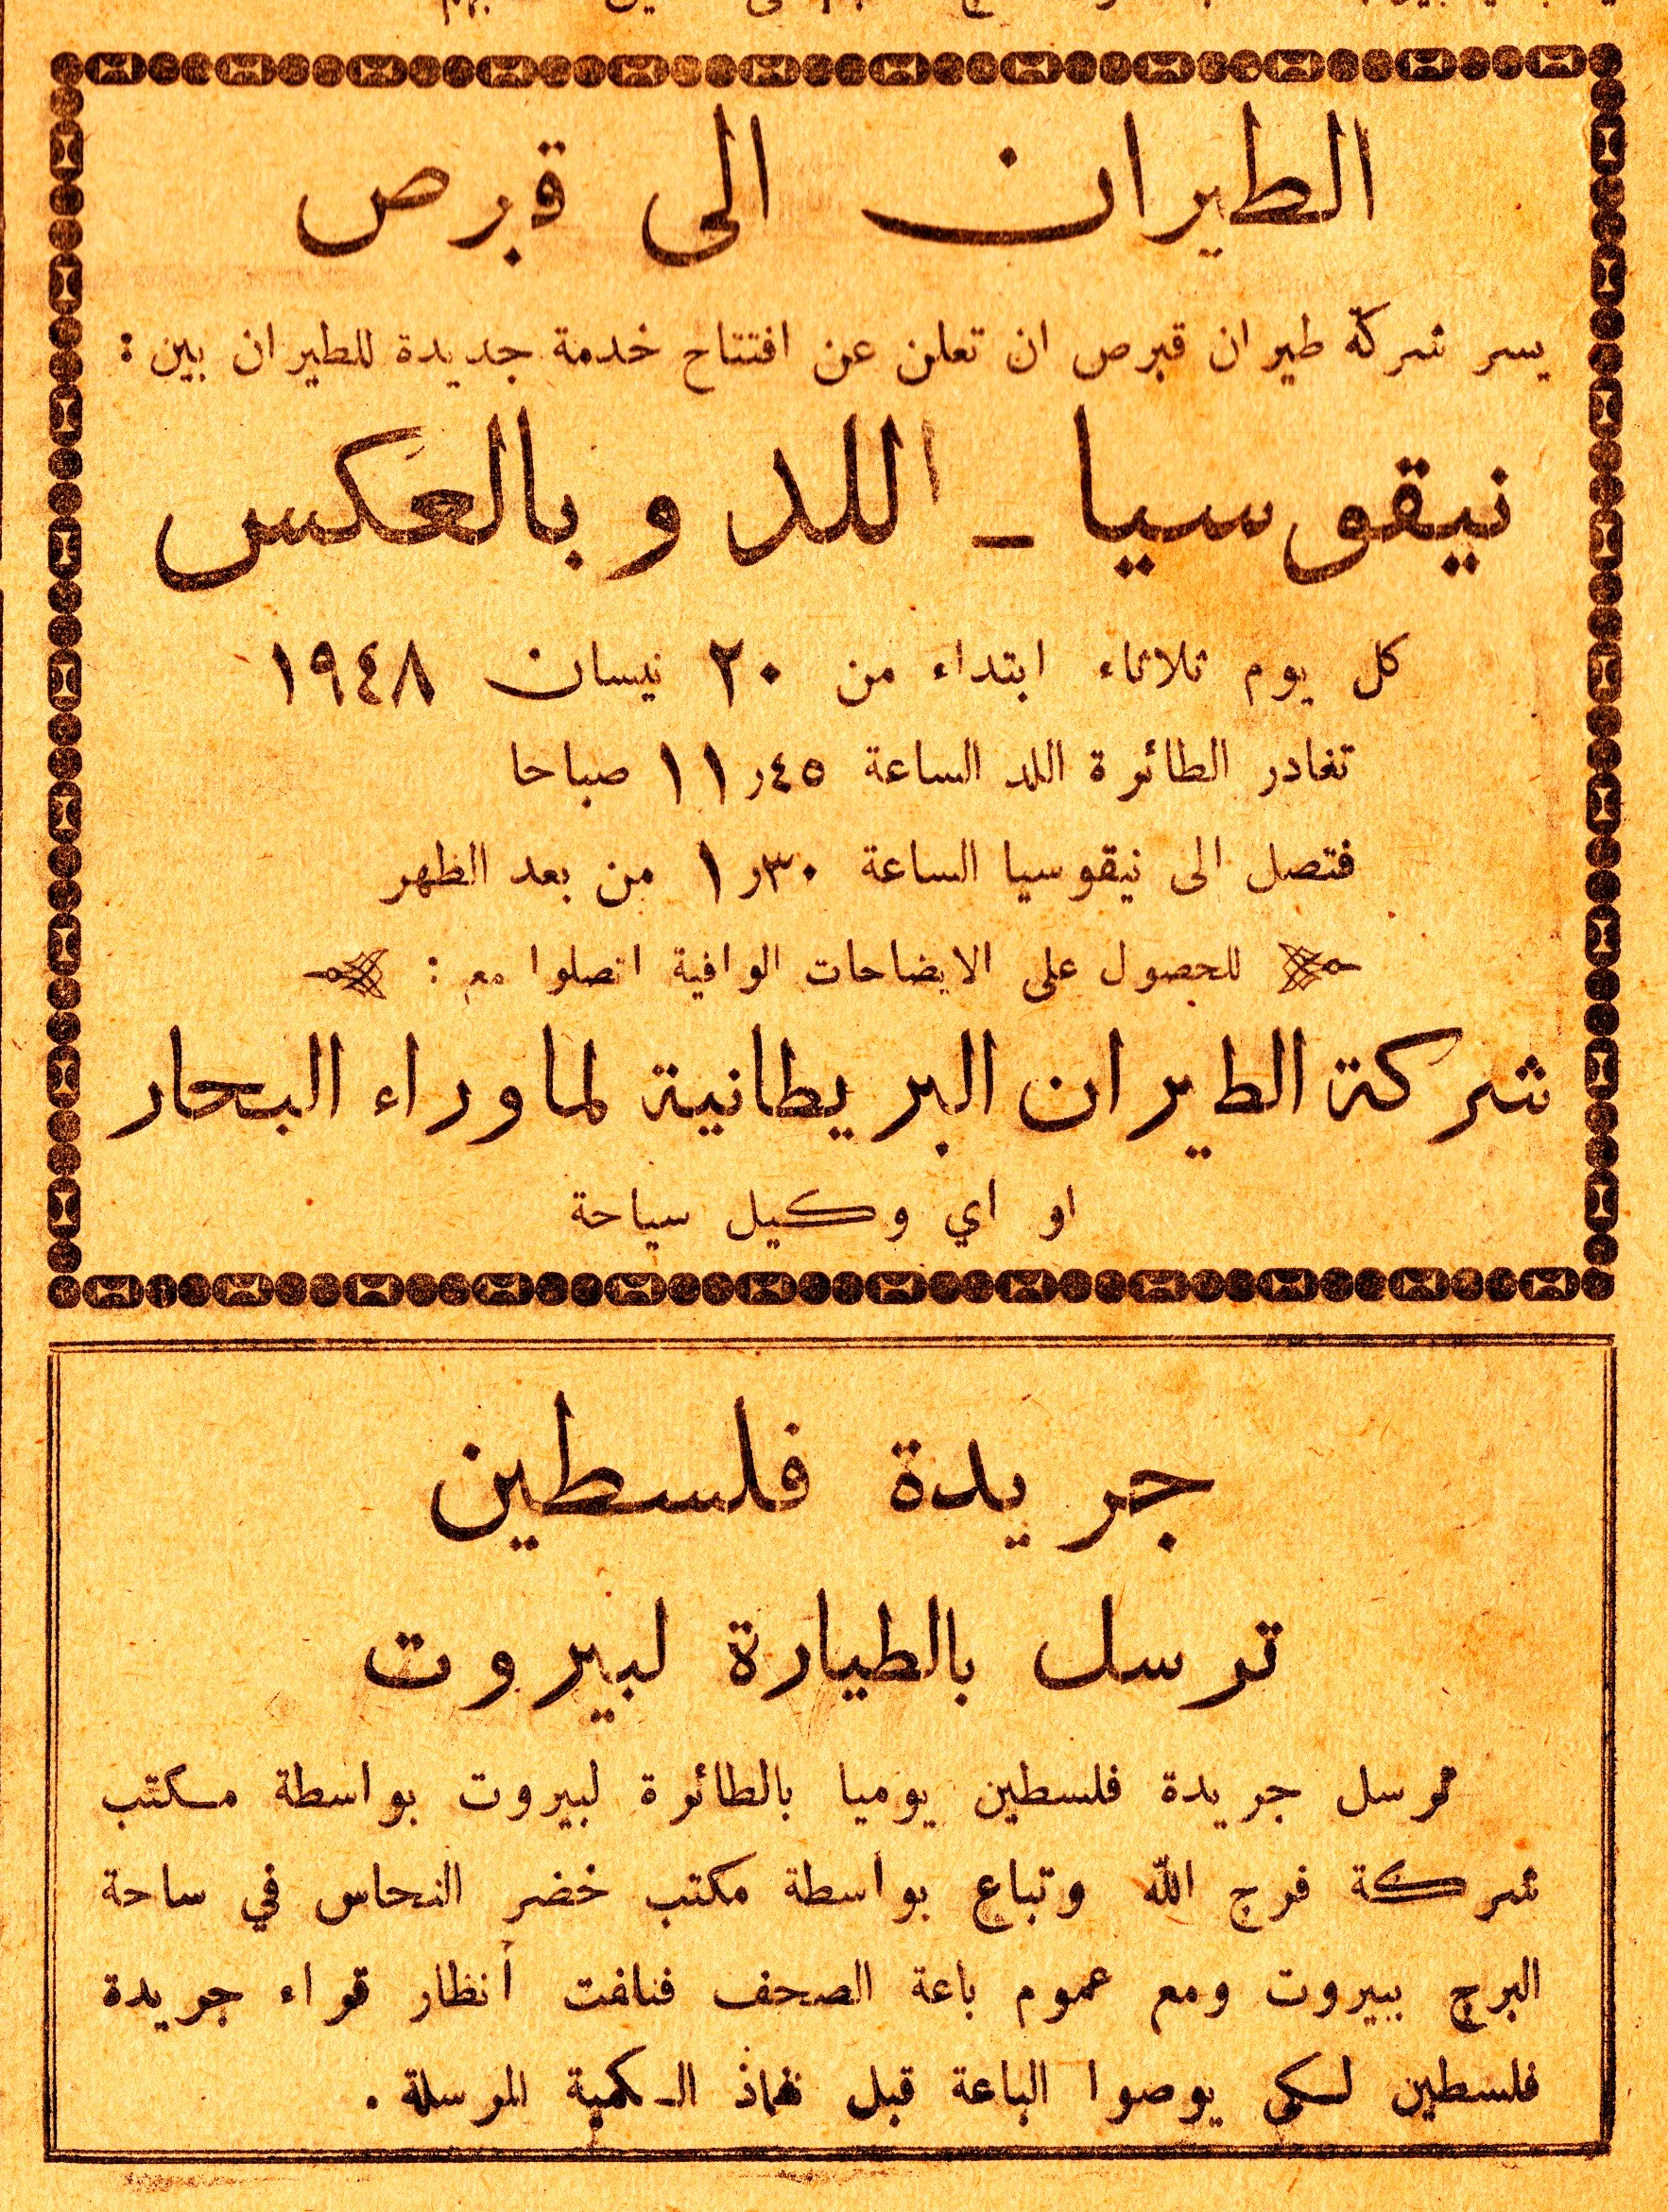 الطيران الى قبرص
يسر شركة طيران قبرص ان تعلن عن افتتاح خدمة جديدة للطيران بين :
نيقوسيا ـ اللد وبالعكس
كل يوم ثلاثاء ابتداء من ٢٠ نيسان ١٩٤٨
تغادر الطائرة اللد الساعة ٤٥ر١١ صباحا
فتصل الى نيقوسيا الساعة ٣٠ر١ من بعد الظهر
للحصول على الايضاحات الوافية اتصلوا مع :
شركة الطيران البريطانية لما وراء البحار
او اي وكيل سياحة
جريدة فلسطين
ترسل بالطيارة لبيروت
ترسل جريدة فلسطين يوميا بالطائرة لبيروت بواسطة مكتب
شركة فرج الله وتباع بواسطة مكتب خضر النحاس في ساحة
البرج ببيروت ومع عموم باعة الصحف فنلفت أنظار قراء جريدة
فلسطين لكي يوصوا الباعة قبل نفاذ الكمية المرسلة .